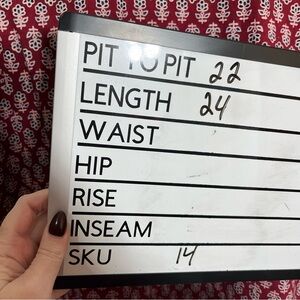 PIT TO PIT 22
LENGTH 24
WAIST
HIP
RISE
INSEAM
SKU 14